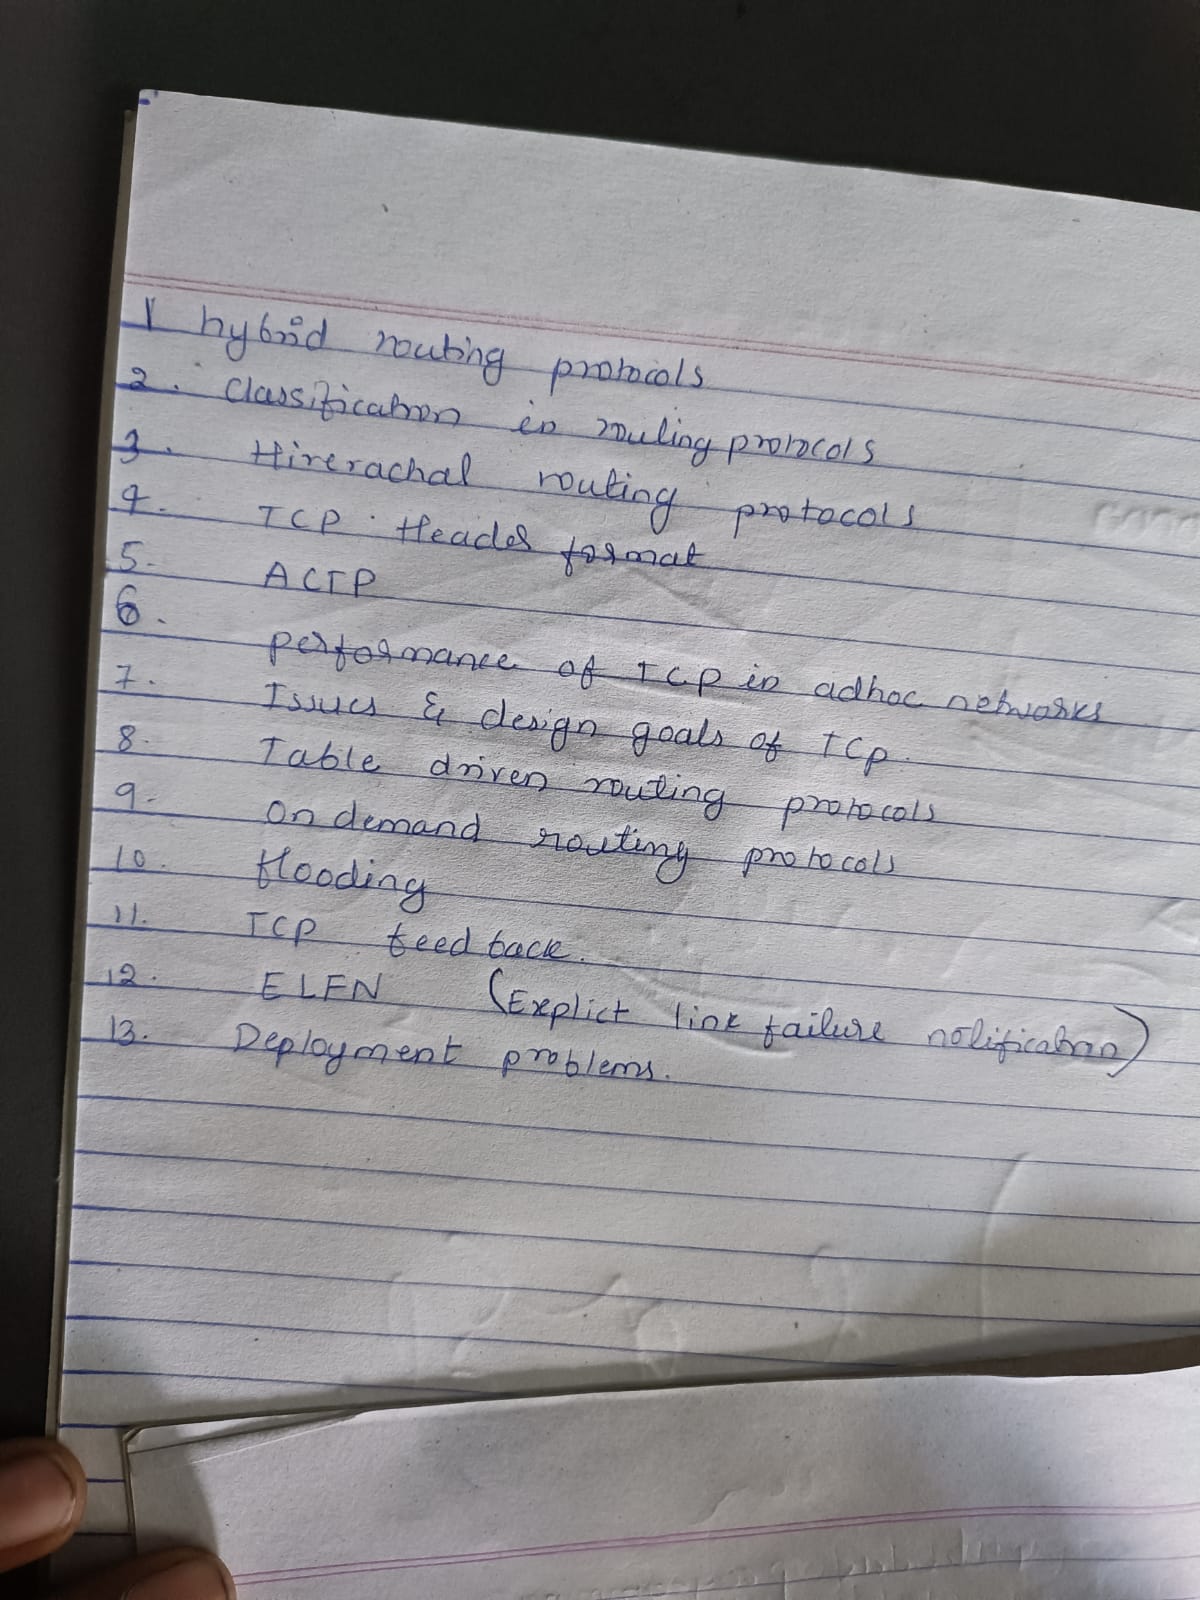 1 hybrid routing protocols
2. Classification in routing protocols
3. Hirerachal routing protocols
4. TCP Header format
5. ACTP
6. performance of TCP in adhoc networks
7. Issues & design goals of TCP.
8. Table driven routing protocols
9. on demand routing protocols
10. flooding
11. TCP feed back.
12. ELFN (Explict link failure notification)
13. Deployment problems.